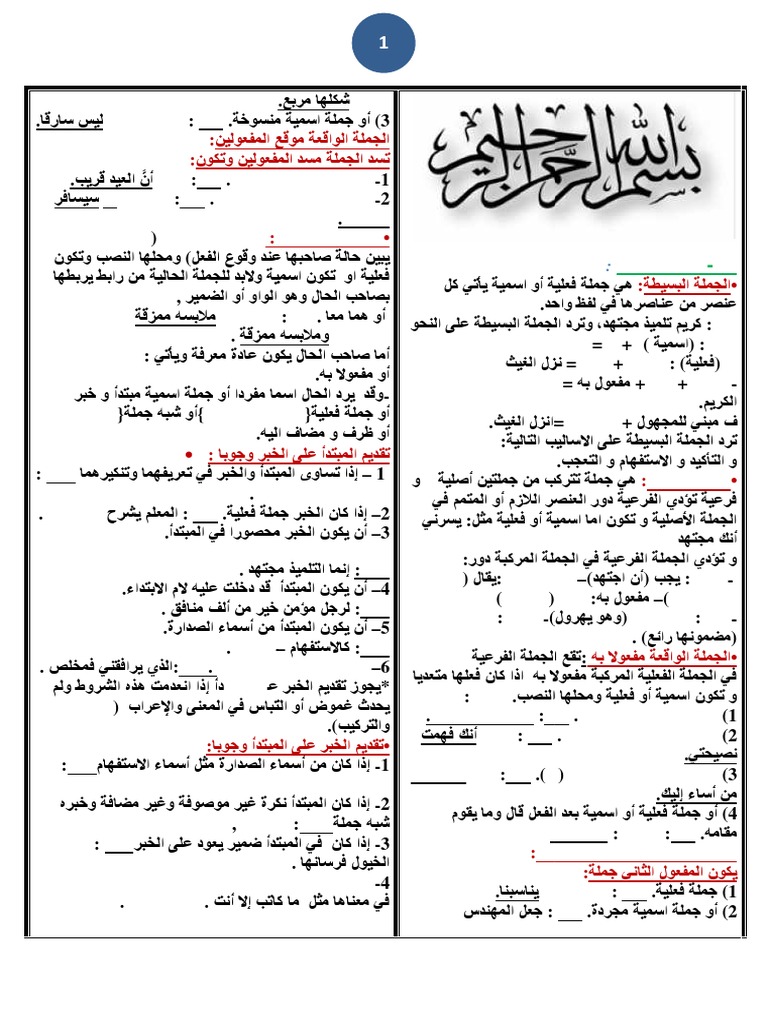 1
بسم الله الرحمن الرحيم
- ـــــــــــــــ :
•الجملة البسيطة: هي جملة فعلية أو اسمية يأتي كل
عنصر من عناصرها في لفظ واحد.
: كريم تلميذ مجتهد، وترد الجملة البسيطة على النحو
: (اسمية ) + =
(فعلية) : + = نزل الغيث
- + + مفعول به =
الكريم.
ف مبني للمجهول + =انزل الغيث.
ترد الجملة البسيطة على الاساليب التالية:
و التأكيد و الاستفهام و التعجب.
•ـــــــــــــ: هي جملة تتركب من جملتين أصلية و
فرعية تؤدي الفرعية دور العنصر اللازم أو المتمم في
الجملة الأصلية و تكون اما اسمية أو فعلية مثل: يسرني
أنك مجتهد
و تؤدي الجملة الفرعية في الجملة المركبة دور:
- : يجب (أن اجتهد)– :يقال (
)– مفعول به: ( )
- : (وهو يهرول)- :
(مضمونها رائع) .
•الجملة الواقعة مفعولا به :تقع الجملة الفرعية
في الجملة الفعلية المركبة مفعولا به اذا كان فعلها متعديا
و تكون اسمية أو فعلية ومحلها النصب. :
1) . ___: ــــــــــــــ.
2) . ___ : أنك فهمت
نصيحتي.
3) ( ). ___: ـــــــــ
من أساء إليك.
4) أو جملة فعلية أو اسمية بعد الفعل قال وما يقوم
مقامه. ___: : ـــــــــ
ـــــــــــــــــــــــــــــ:
يكون المفعول الثاني جملة:
1) جملة فعلية. ___ : يناسبنا.
2) أو جملة اسمية مجردة. ___ : جعل المهندس
شكلها مربع.
3) أو جملة اسمية منسوخة. ___ : ليس سارقا.
الجملة الواقعة موقع المفعولين:
تسد الجملة مسد المفعولين وتكون:
1- . ___: أنَّ العيد قريب.
2- . ___: _ سيسافر
ــــــــ.
• ـــــــــــــــــ: (
يبين حالة صاحبها عند وقوع الفعل) ومحلها النصب وتكون
فعلية او تكون اسمية ولابد للجملة الحالية من رابط يربطها
بصاحب الحال وهو الواو أو الضمير ,
أو هما معا . : ملابسه ممزقة
وملابسه ممزقة .
أما صاحب الحال يكون عادة معرفة ويأتي :
أو مفعولا به.
-وقد يرد الحال اسما مفردا أو جملة اسمية مبتدأ و خبر
أو جملة فعلية{ }أو شبه جملة{
أو ظرف و مضاف اليه.
تقديم المبتدأ على الخبر وجوبا : •
1 – إذا تساوى المبتدأ والخبر في تعريفهما وتنكيرهما ___ :
.
2– إذا كان الخبر جملة فعلية. ___ : المعلم يشرح .
3– أن يكون الخبر محصورا في المبتدأ.
___: إنما التلميذ مجتهد .
4– أن يكون المبتدأ قد دخلت عليه لام الابتداء.
___: لرجل مؤمن خير من ألف منافق .
5– أن يكون المبتدأ من أسماء الصدارة.
___: كالاستفهام – .
6– . ___:الذي يرافقني فمخلص .
*يجوز تقديم الخبر عـ دأ إذا انعدمت هذه الشروط ولم
يحدث غموض أو التباس في المعنى والإعراب (
والتركيب).
•تقديم الخبر على المبتدأ وجوبا:
1- إذا كان من أسماء الصدارة مثل أسماء الاستفهام___:
2- إذا كان المبتدأ نكرة غير موصوفة وغير مضافة وخبره
شبه جملة___: ,
3- إذا كان في المبتدأ ضمير يعود على الخبر___ :
الخيول فرسانها .
4-
في معناها مثل ما كاتب إلا أنت . .